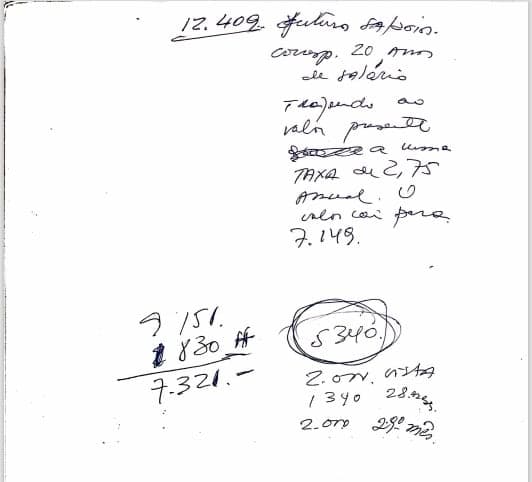 12.409. futuro salário.
corresp. 20 Anos
de salário
Trazendo ao
valor presente
a uma
TAXA de 2,75
Anual. O
valor cai para
7.149.
9 151.
1 830
7.321.-
5340.
2.000. VISTA
1340 28.mes.
2.000 29º mês.